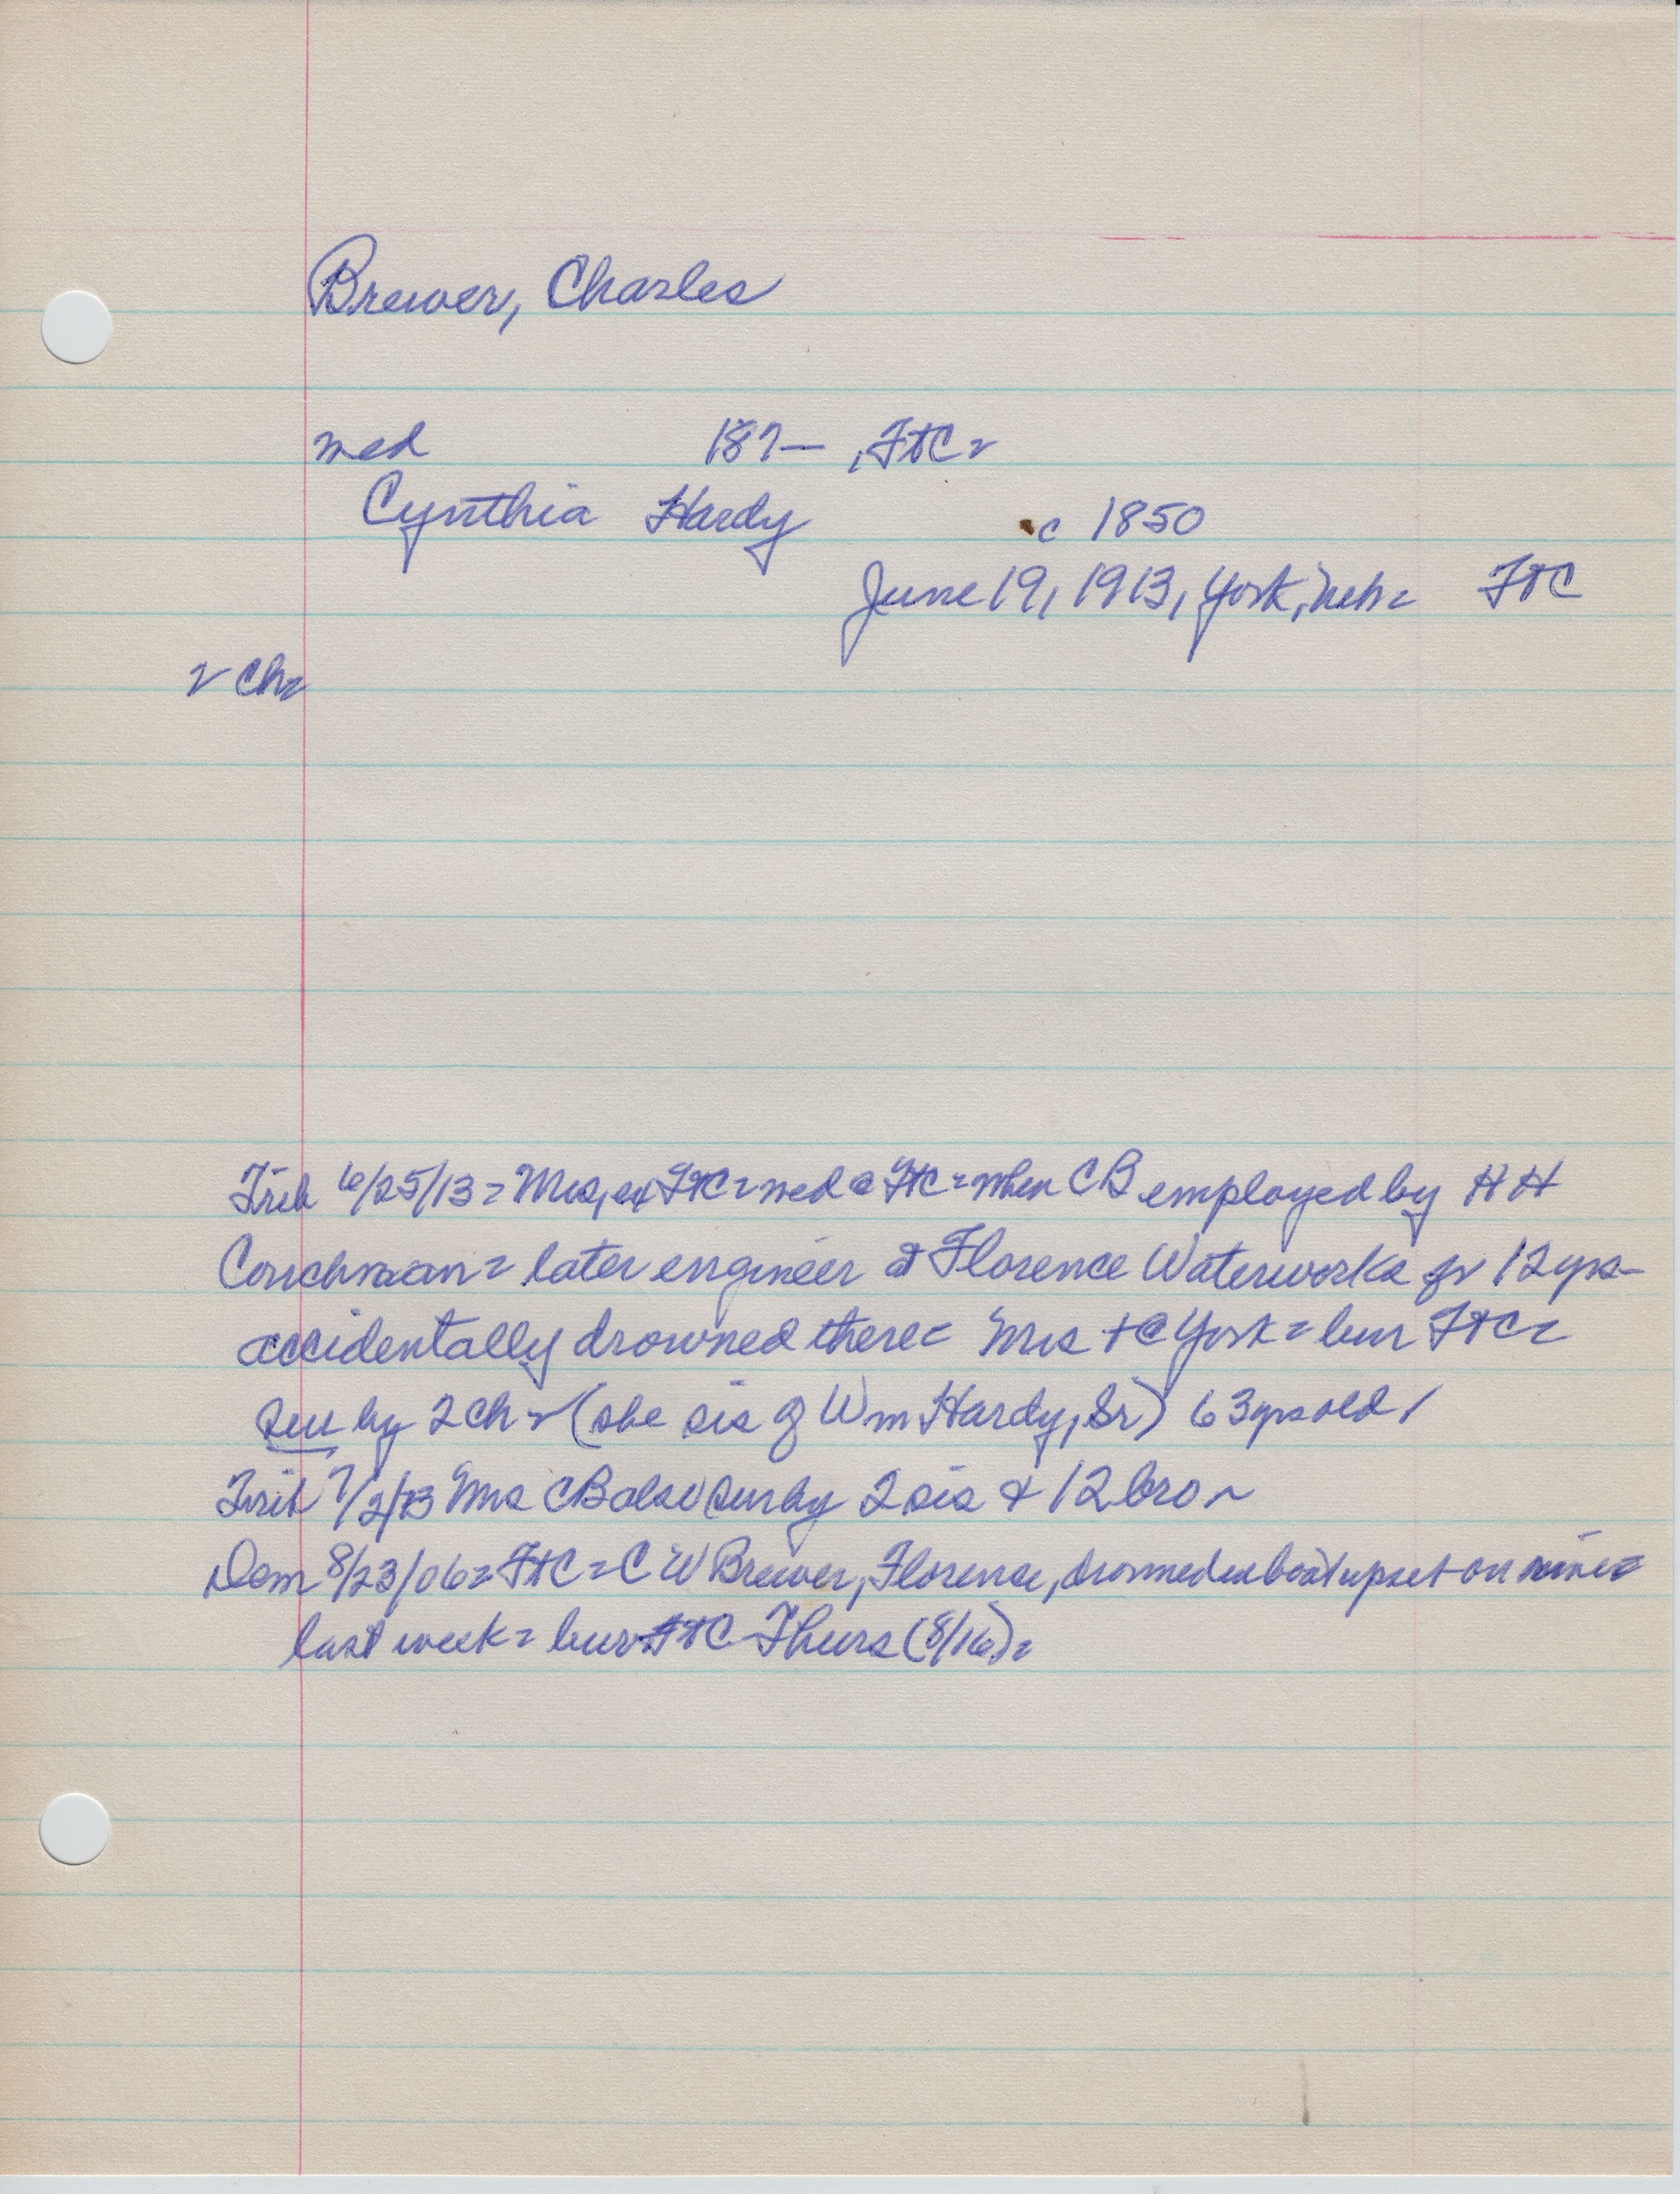 Brewer, Charles
med 187— , FtC =
Cynthia Hardy c 1850
June 19, 1913, York, Neb = FtC
2 Ch =
Trib 6/25/13 = Mrs, ex FtC = med @ FtC = when CB employed by H H
Couchman = later engineer at Florence Waterworks for 12 yrs -
accidentally drowned there = Mrs + @ York = bur FtC =
sur by 2 ch = (she sis of Wm Hardy, Sr) 63 yrs old /
Trib 7/2/13 Mrs CB also sur by 2 sis & 12 bro ~
Dem 8/23/06 = FtC = C W Brewer, Florence, drowned boat upset on river =
last week = bur FtC Thurs (8/16) =